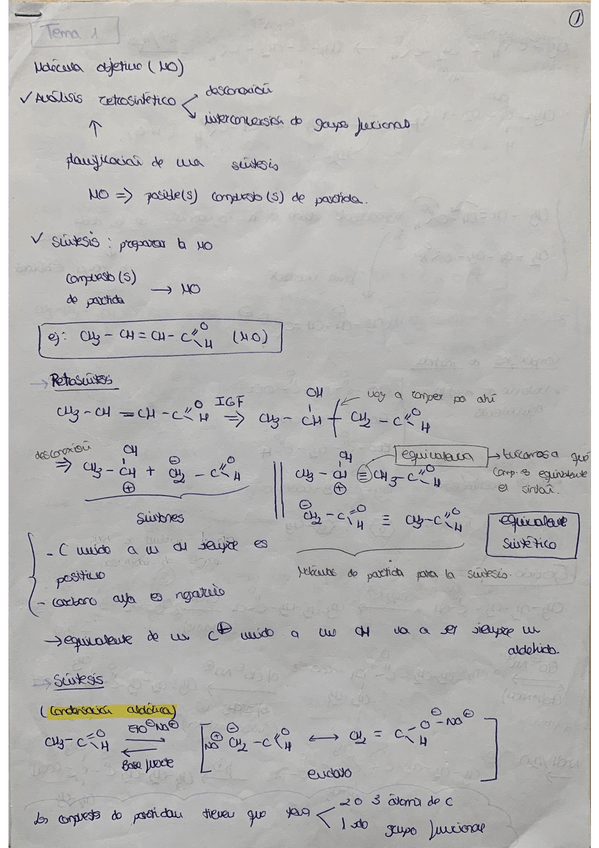 1
Tema 1
Molécula objetivo (MO)
✓ Análisis retrosintético < desconexión
interconversión de grupo funcional
↑
planificación de una síntesis
MO => posible(s) compuesto(s) de partida.
✓ Síntesis: preparar la MO
compuesto(s) de partida → MO
ej: CH3 - CH = CH - C =O H (MO)
→ Retrosíntesis
CH3 - CH = CH - C =O H IGF ⇒ CH3 - CH OH - CH2 - C =O H ← voy a romper por ahí
desconexión ⇒ CH3 - CH OH ⊕ + CH2 ⊖ - C =O H
sintones
CH3 - CH OH ⊕ ≡ CH3 - C =O H
equivalencia → buscamos a qué comp. es equivalente el sintón.
⊖ CH2 - C =O H ≡ CH3 - C =O H
equivalente sintético
Moléculas de partida para la síntesis.
- C unido a un OH siempre es positivo
- carbono alfa es negativo
→ equivalente de un C⊕ unido a un OH va a ser siempre un aldehído.
→ Síntesis
(Condensación aldólica)
CH3 - C =O H EtO⊖ Na⊕ ⇌ Base fuerte [ Na⊕ ⊖CH2 - C =O H ↔ CH2 = C - O⊖ Na⊕ H ]
enolato
Los compuestos de partida tienen que < 2 o 3 átomos de C
1 solo grupo funcional